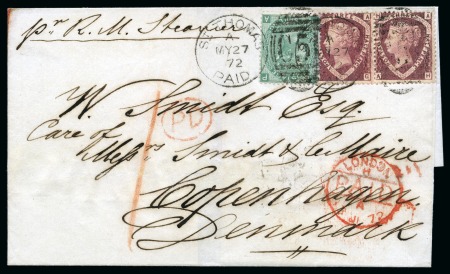 pr R. M. Steamer
ST THOMAS
A
MY 27
72
PAID
C51
W. Smidt Esq.
Care of
Messrs Smidt & le Maire
Copenhagen
Denmark
PD
LONDON
PAID
72
1